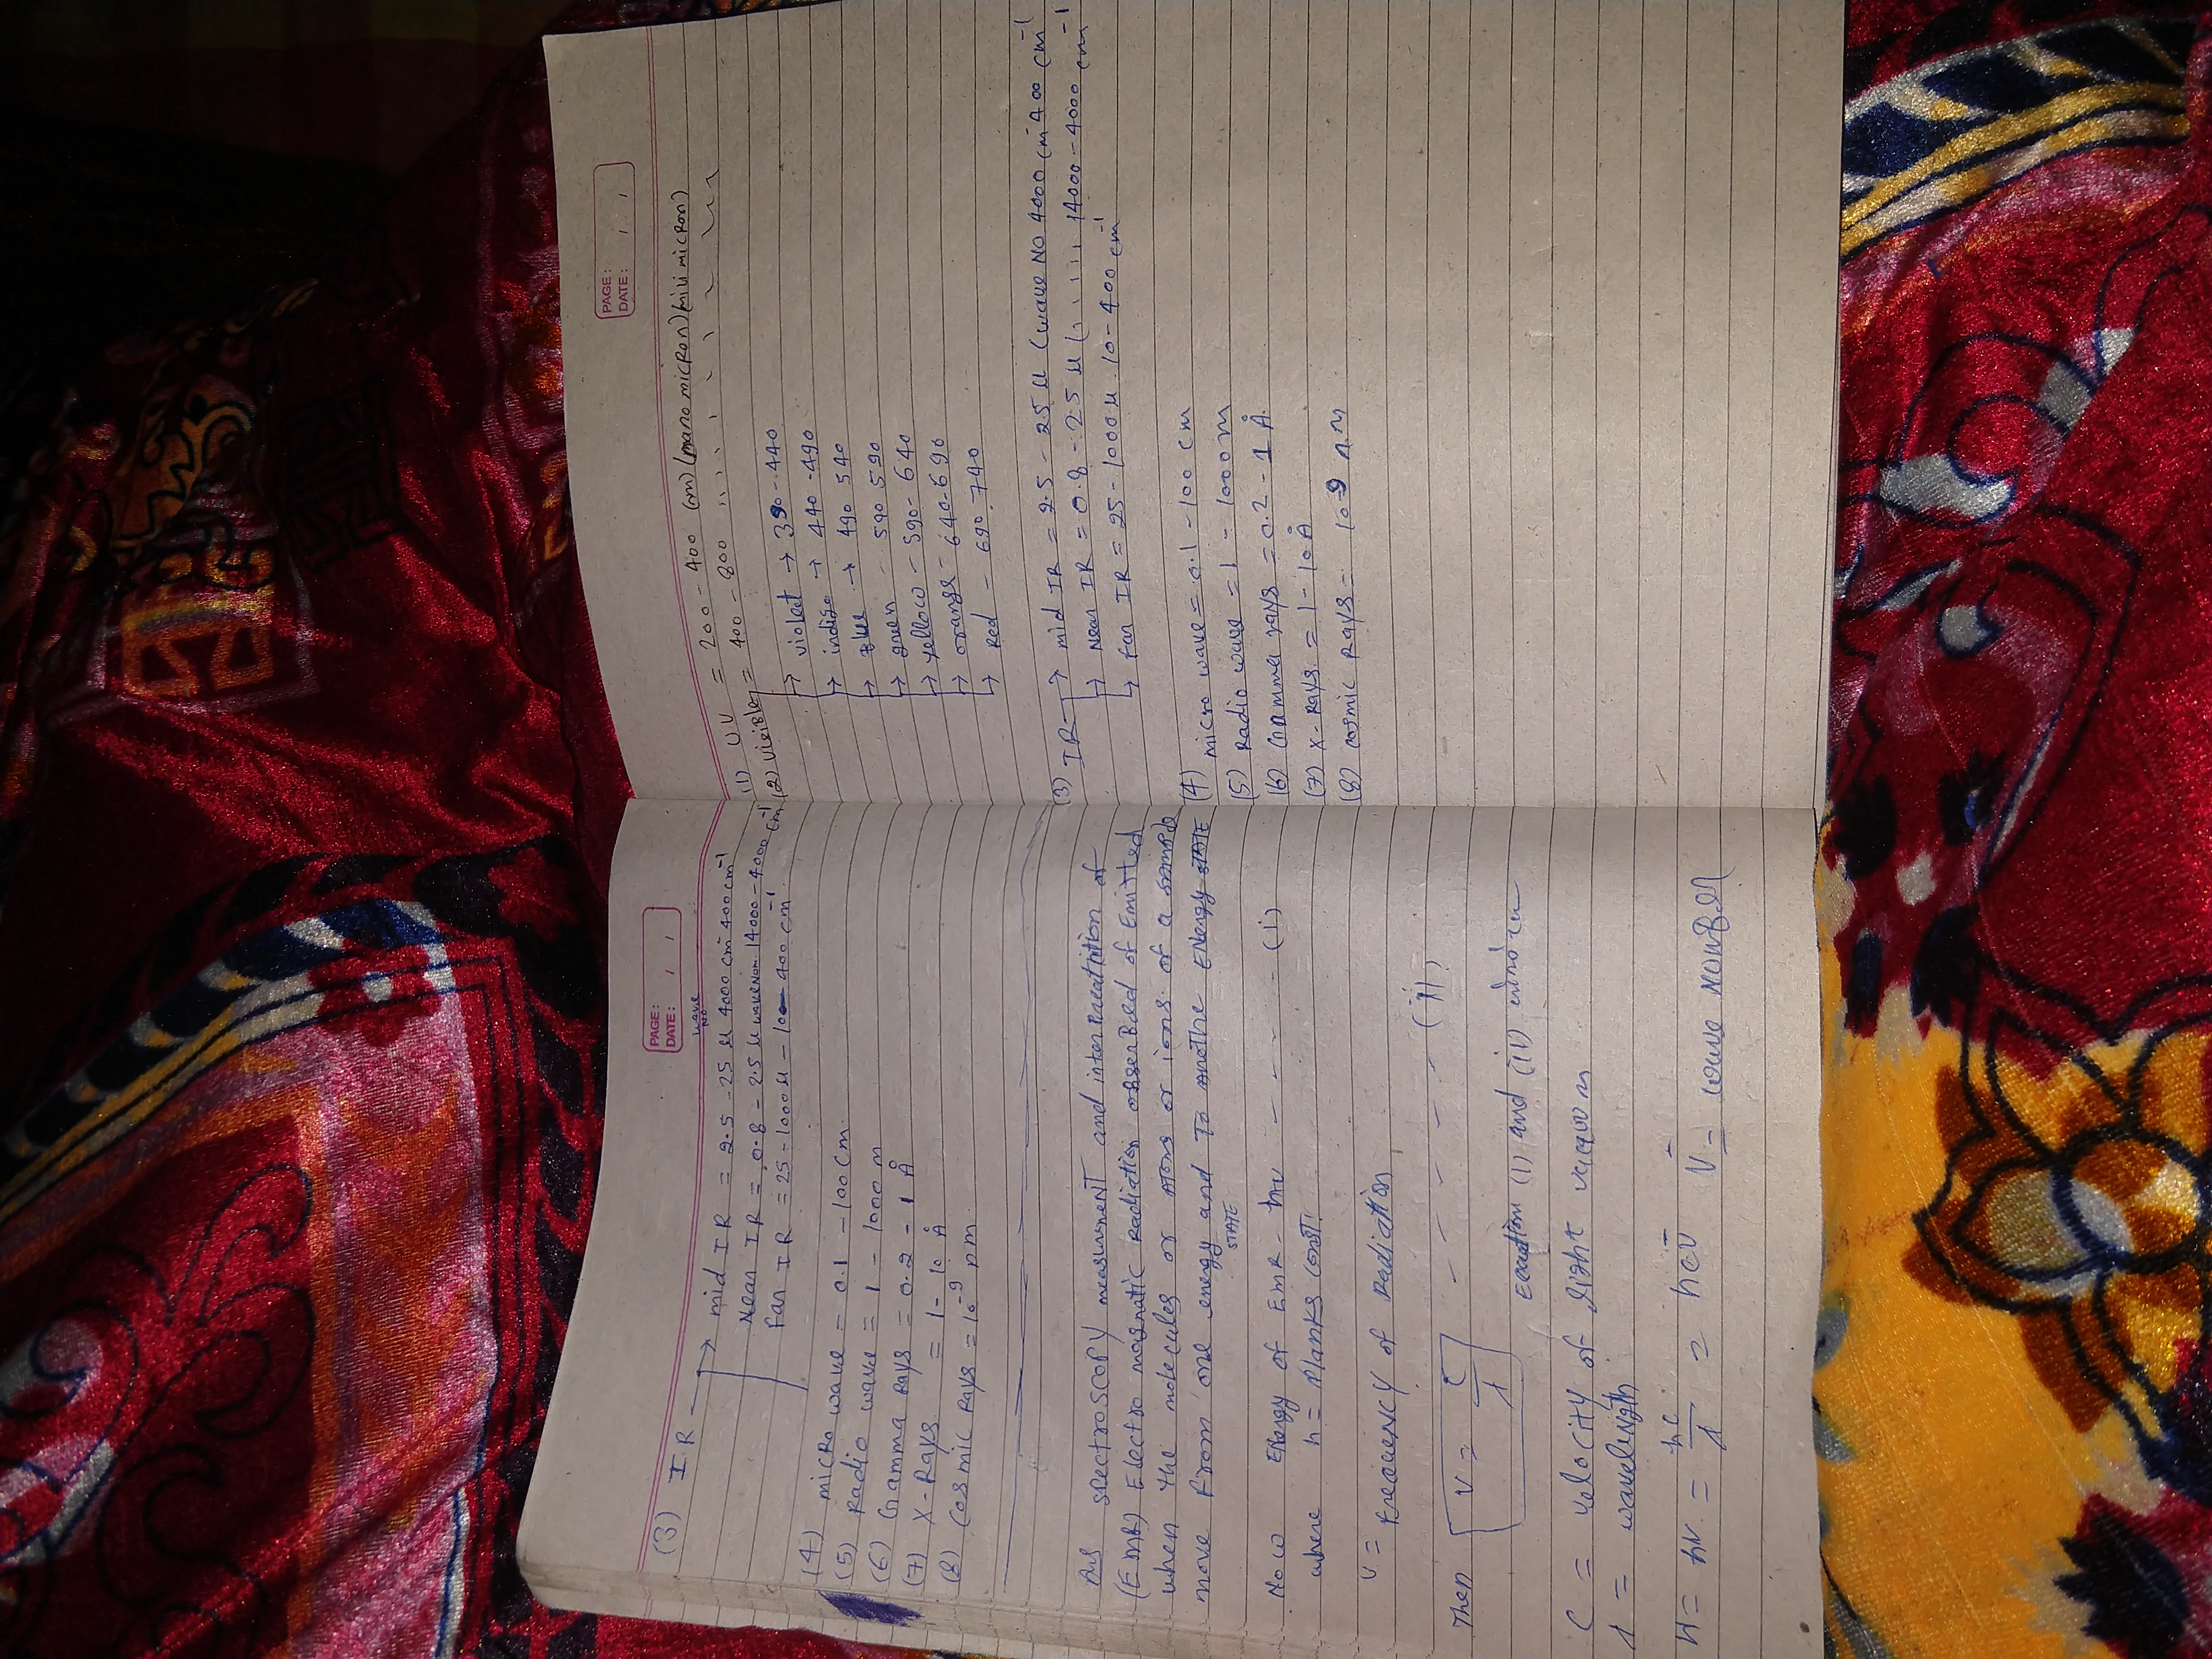 PAGE:
DATE: / /
(3) IR → mid IR = 2.5 - 25 μ wave No 4000 cm⁻ 400 cm⁻¹
Near IR = 0.8 - 2.5 μ wave Nom 14000 - 4000 cm⁻¹
Far IR = 25 - 1000 μ - 10 - 400 cm⁻¹
(4) micro wave = 0.1 - 100 cm
(5) Radio wave = 1 - 1000 m
(6) Gamma Rays = 0.2 - 1 Å
(7) X-Rays = 1 - 10 Å
(8) Cosmic Rays = 10⁻⁹ nm
Ans spectroscopy measurment and
(EMR) Electro magnatic Radiation of Emitted
when the molecules or Atoms or ions of a sample
move From one energy STATE and To Anothe ENergy STATE
Now Energy of EMR - hν - - - - (i)
where h = Planks Const.
ν = Freauency of Radiation
Then ν = c/λ - - - - - (ii)
Eauation (i) and (ii)
C = velocity of light
λ = wavelength
= hν = hc/λ = hcν̄ ν̄ = wave Number
PAGE:
DATE: / /
(1) UV = 200 - 400 (nm) (nano micron) (mili micron)
(2) Visible = 400 - 800 ,, ,, , , , ,
→ violet → 390 - 440
→ indigo → 440 - 490
→ Blue → 490 540
→ green - 540 590
→ yellow - 590 - 640
→ orange - 640 - 690
→ Red - 690 740
(3) IR → mid IR = 2.5 - 25 μ (wave No 4000 cm⁻ 400 cm⁻¹
→ Near IR = 0.8 - 2.5 μ ( , , , , , 14000 - 4000 cm⁻¹
→ far IR = 25 - 1000 μ 10 - 400 cm⁻¹
(4) micro wave = 0.1 - 100 cm
(5) Radio wave = 1 - 1000 m
(6) Gamma rays = 0.2 - 1 Å
(7) X-Rays = 1 - 10 Å
(8) cosmic Rays = 10-9 n.m